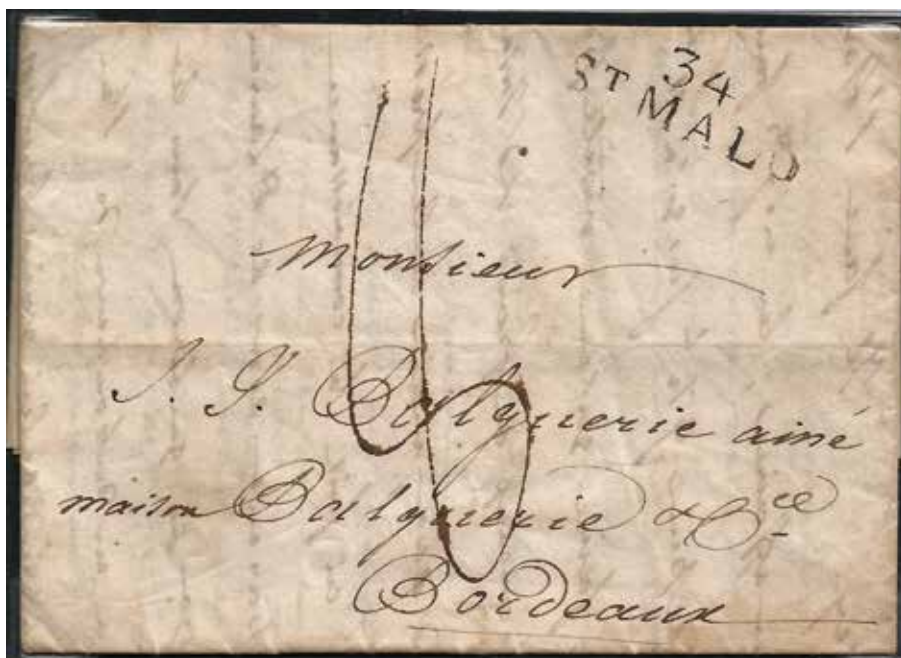 34
ST MALO
Monsieur
J. J. Balguerie ainé
maison Balguerie & Cie
Bordeaux